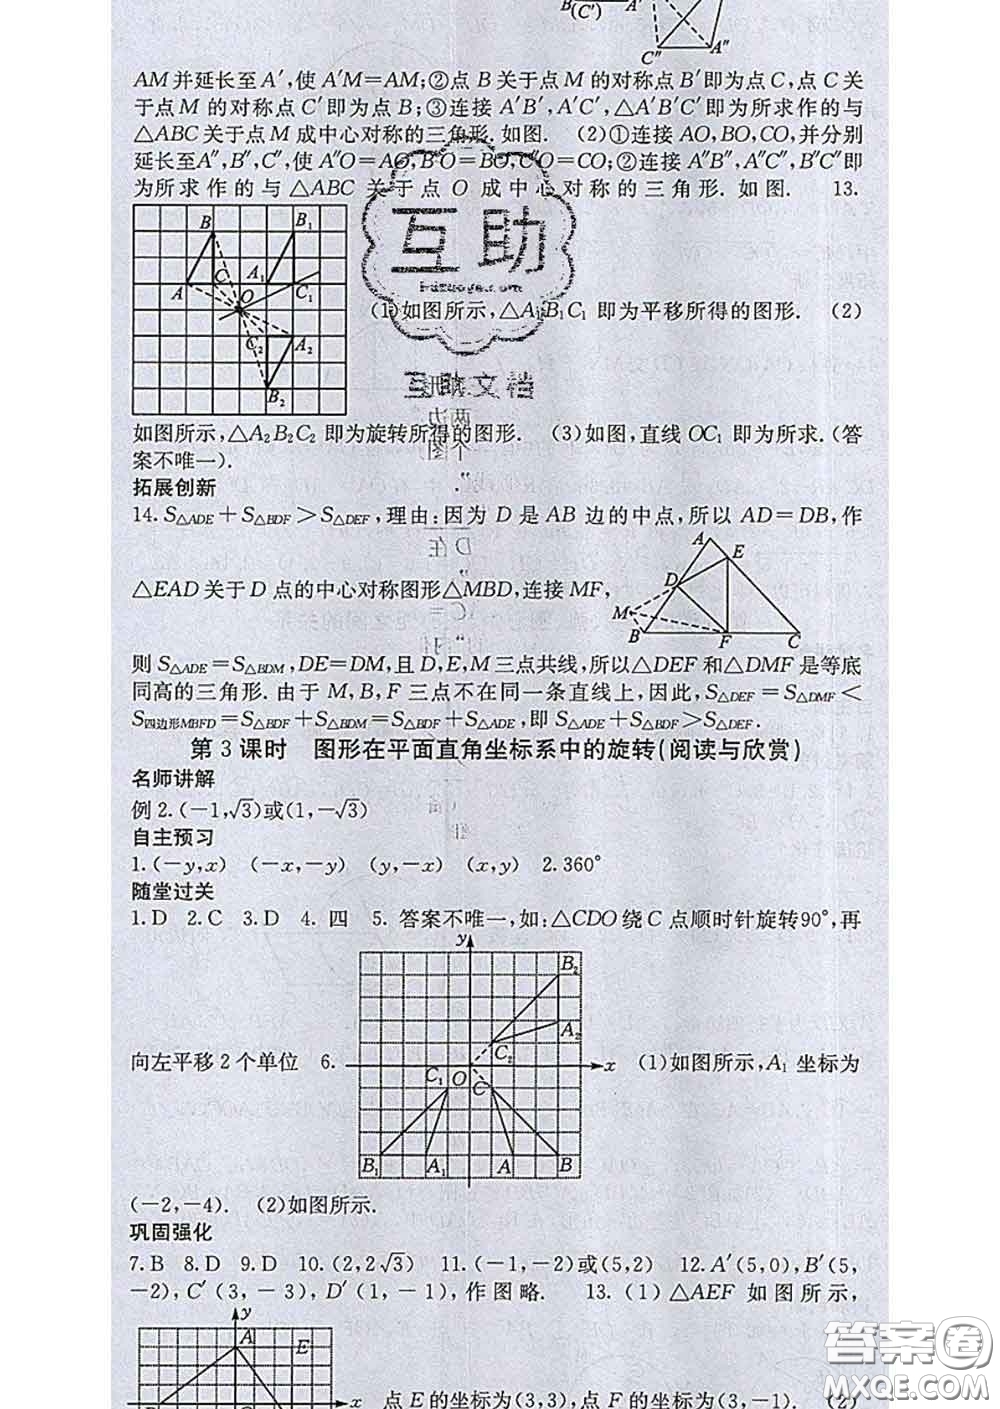 B A′
(C′)
C″ A″
AM并延长至A′,使A′M=AM;②点B关于点M的对称点B′即为点C,点C关
于点M的对称点C′即为点B;③连接A′B′,A′C′,△A′B′C′即为所求作的与
△ABC关于点M成中心对称的三角形.如图. (2)①连接AO,BO,CO,并分别
延长至A″,B″,C″,使A″O=AO,B″O=BO,C″O=CO;②连接A″B″,A″C″,B″C″即
为所求作的与△ABC关于点O成中心对称的三角形.如图. 13.
B B₁
A C O A₁ C₁
C₂ A₂
B₂
互助
(1)如图所示,△A₁B₁C₁即为平移所得的图形. (2)
如图所示,△A₂B₂C₂即为旋转所得的图形. (3)如图,直线OC₁即为所求.(答
案不唯一).
拓展创新
14.S△ADE+S△BDF>S△DEF,理由:因为D是AB边的中点,所以AD=DB,作
△EAD关于D点的中心对称图形△MBD,连接MF,
A E D M B F C
则S△ADE=S△BDM,DE=DM,且D,E,M三点共线,所以△DEF和△DMF是等底
同高的三角形.由于M,B,F三点不在同一条直线上,因此,S△DEF=S△DMF<
S四边形MBFD=S△BDF+S△BDM=S△BDF+S△ADE,即S△ADE+S△BDF>S△DEF.
第3课时 图形在平面直角坐标系中的旋转(阅读与欣赏)
名师讲解
例2.(-1,√3)或(1,-√3)
自主预习
1.(-y,x) (-x,-y) (y,-x) (x,y) 2.360°
随堂过关
1.D 2.C 3.D 4.四 5.答案不唯一,如:△CDO绕C点顺时针旋转90°,再
向左平移2个单位 6.
y
B₂
A₂
C₂
x
C₁ O C
B₁ A₁ A B
(1)如图所示,A₁坐标为
(-2,-4). (2)如图所示.
巩固强化
7.B 8.D 9.D 10.(2,2√3) 11.(-1,-2)或(5,2) 12.A′(5,0),B′(5,
-2),C′(3,-3),D′(1,-1),作图略. 13.(1)△AEF如图所示,
y
A E
x
点E的坐标为(3,3),点F的坐标为(3,-1). (2)
答案圈
MXQE.COM